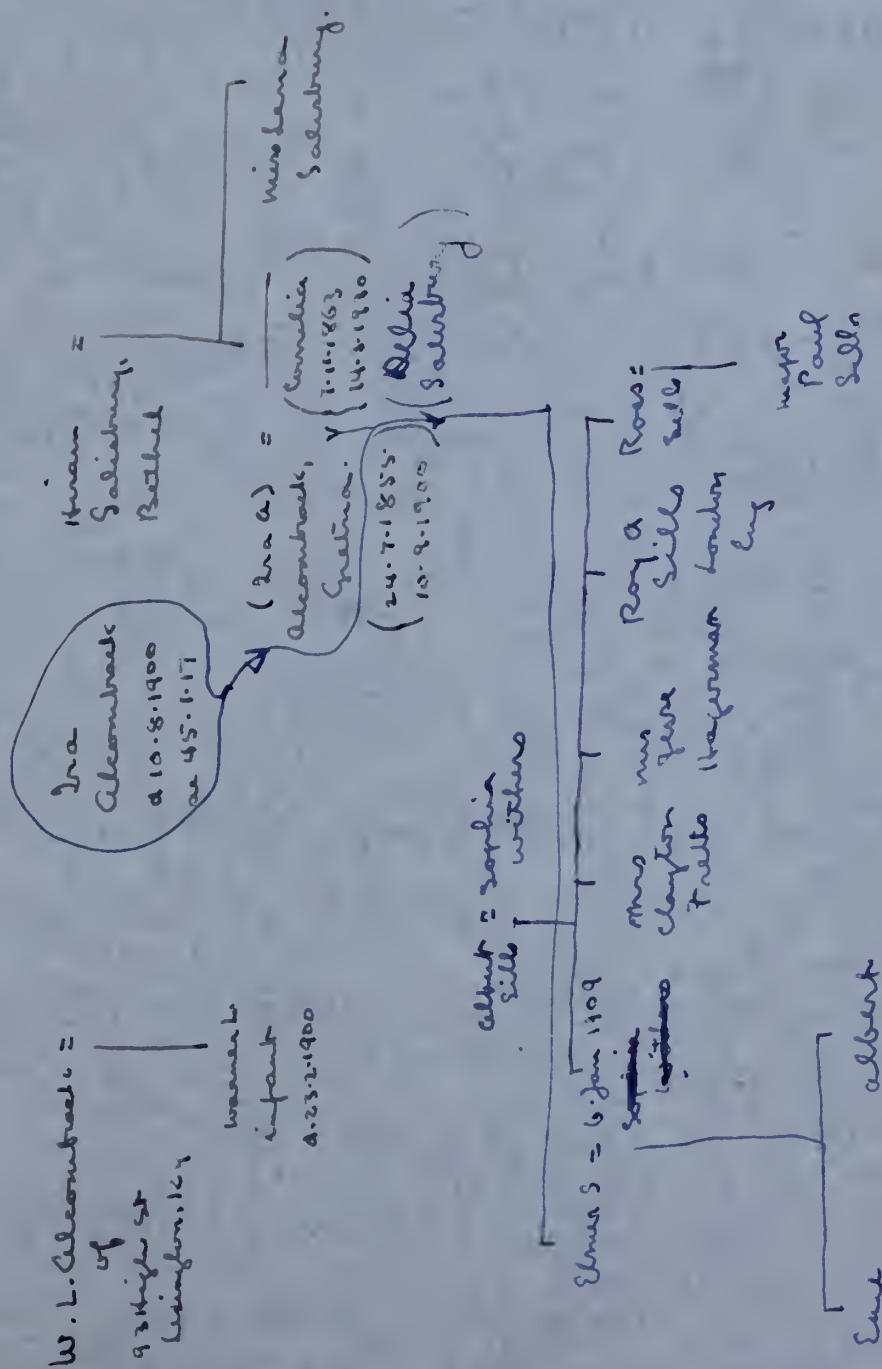 W. L. Alcombrack =
of
93 High St
Lexington, Ky
Warner L
infant
d. 23.2.1900
Ira
Alcombrack
d 10.8.1900
ae 45.1.17
Hiram =
Salisbury,
Bethel
(Ira A) =
Alcombrack,
Gretna.
(24.7.1855.
10.8.1900)
(Cornelia
7.11.1863
14.3.1930)
(Delia
Salisbury)
Miss Lena
Salisbury.
Albert = Sophia
Sills withers
Elmer S = 6.Jan 1909
Sophia
withers
Mrs
Clayton
Fretts
Mrs
Hagerman
Roy A
Sills
London
Eng
Ross =
Sills
Major
Paul
Sills
Albert